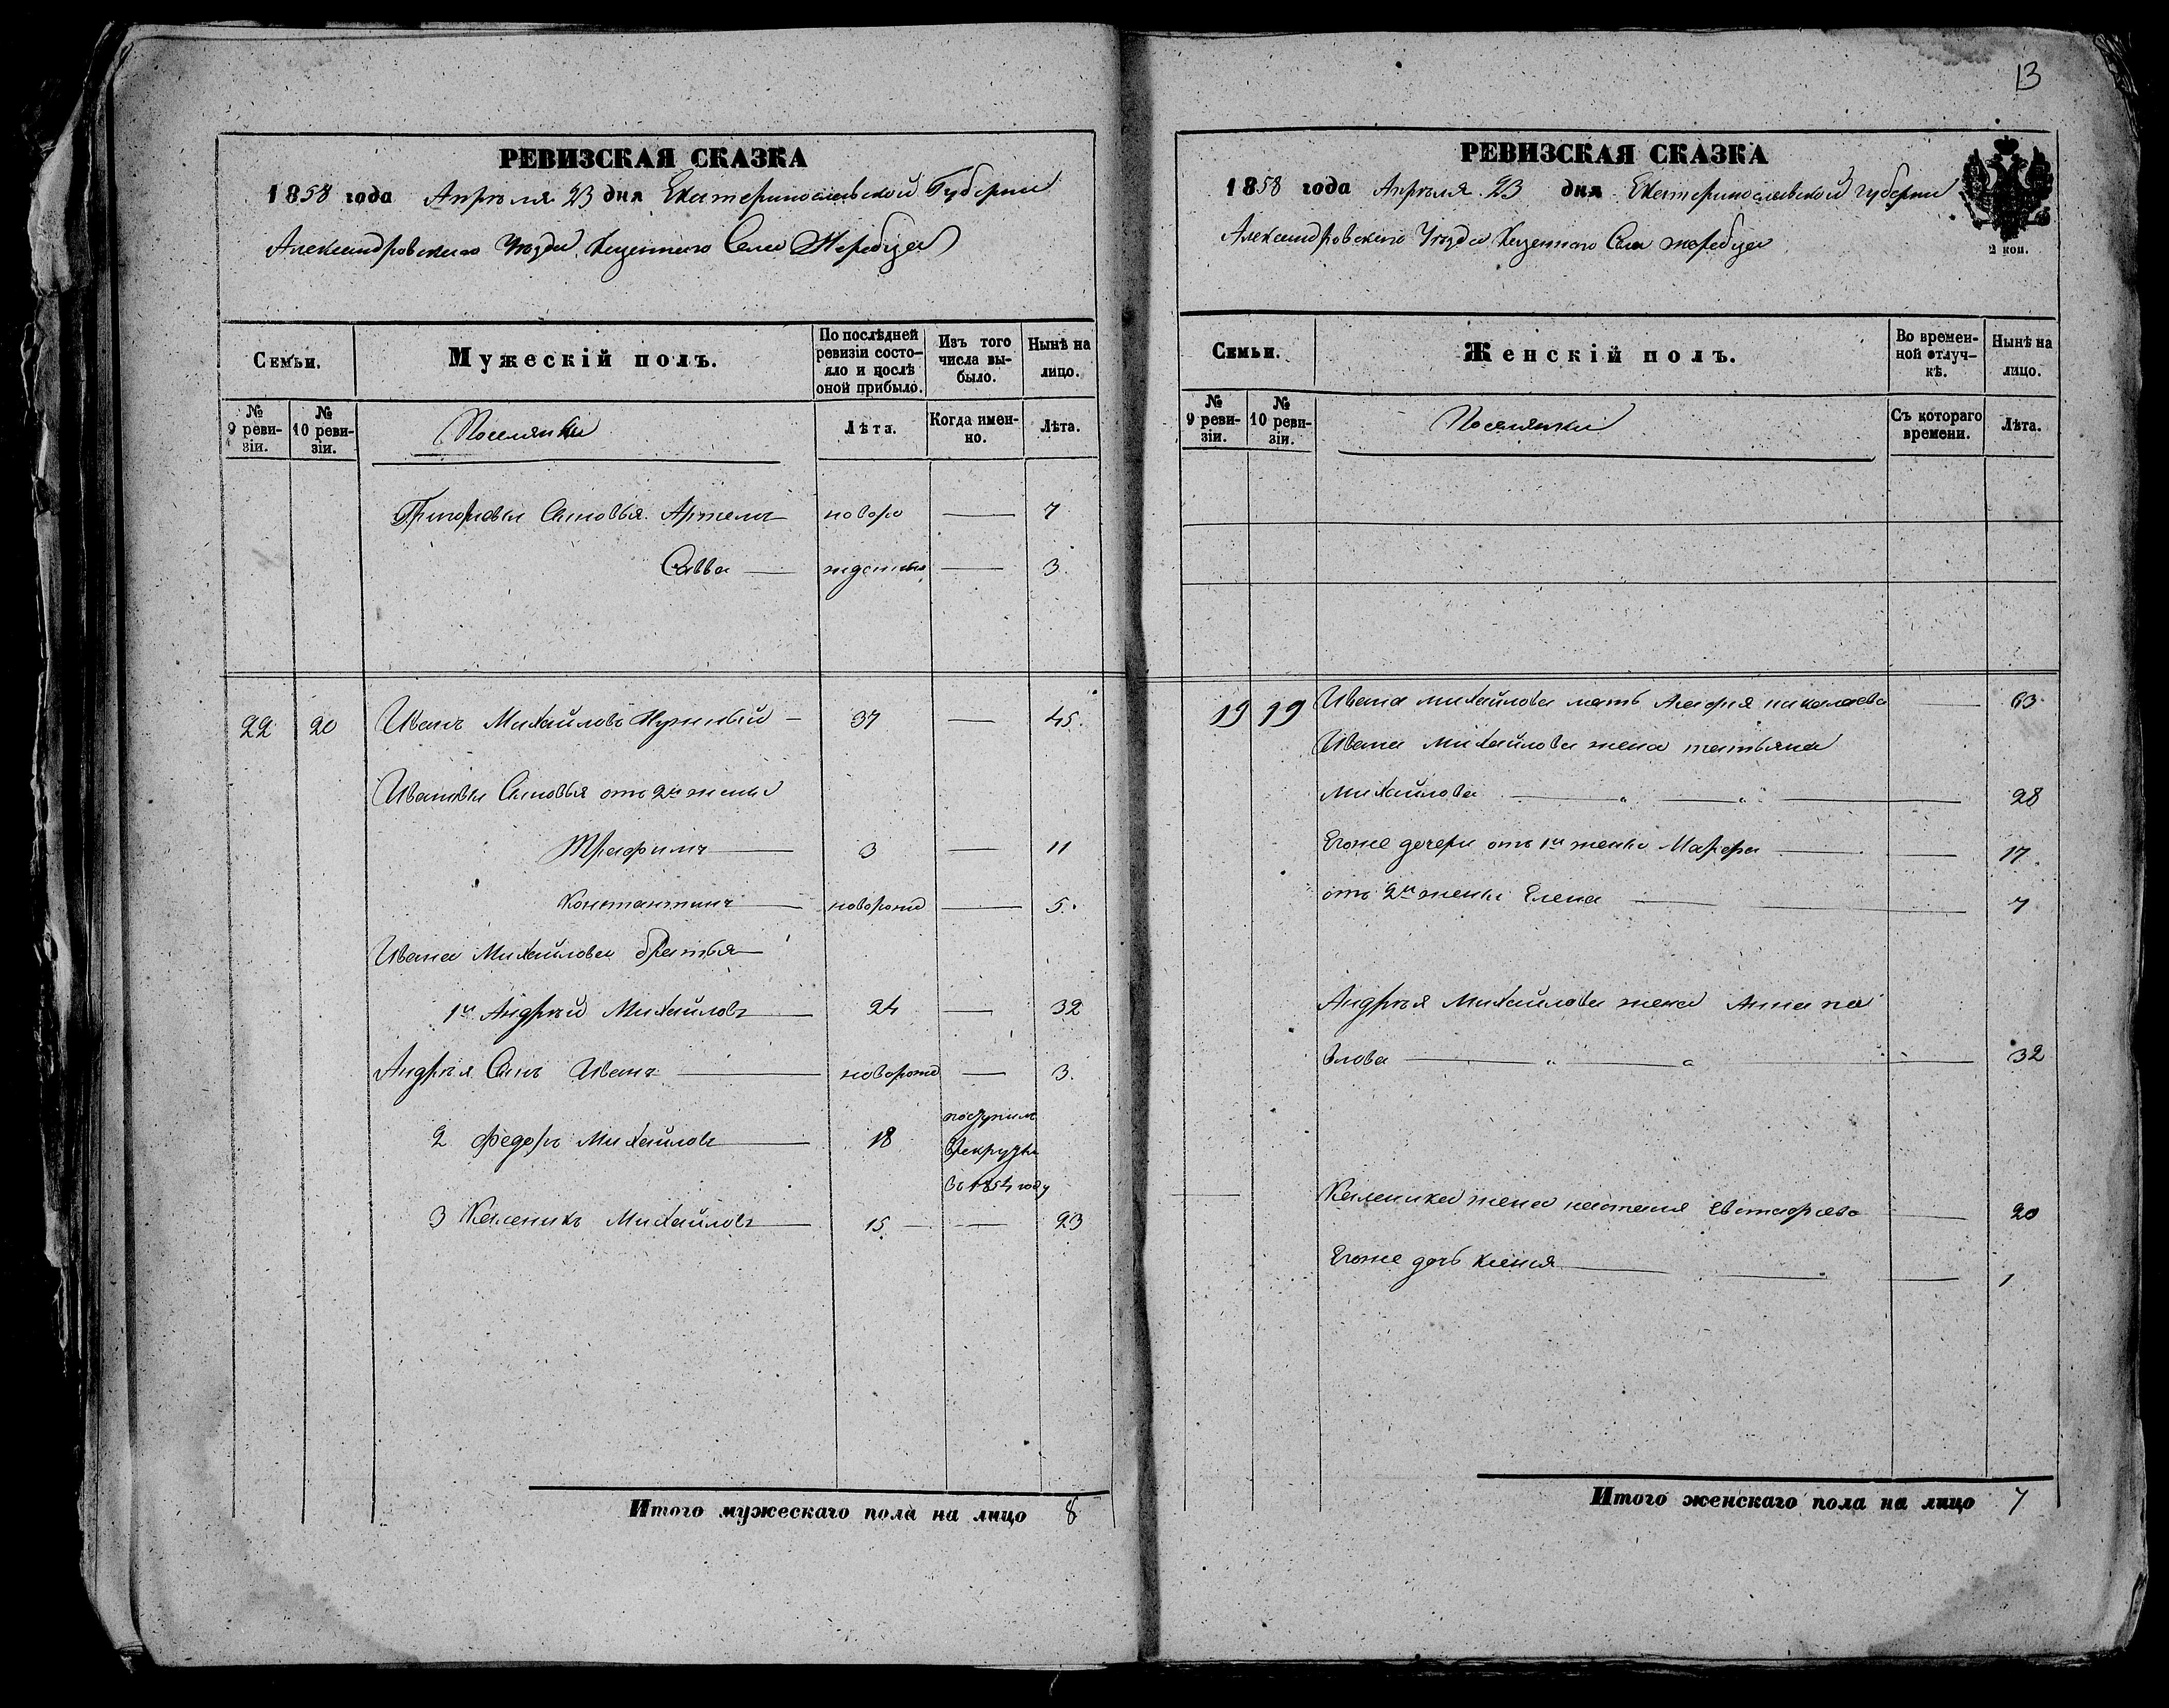 13
РЕВИЗСКАЯ СКАЗКА
1858 года Апреля 23 дня Екатеринославской Губернии
Александровского Уезда, Казенного Села Жеребца
Семьи.
Мужескій полъ.
По послѣдней ревизіи состо-
яло и послѣ оной прибыло.
Изъ того числа вы-
было.
Нынѣ на лицо.
№ 9 реви-
зіи.
№ 10 реви-
зіи.
Поселянки
Лѣта.
Когда имен-
но.
Лѣта.
Григорьевы Сыновья Артемъ новоро 7
Савва жденные 3.
22 20 Иванъ Михайловъ 37 45.
Ивановы Сыновья отъ 2й жены
Трафимъ 3 11
Константинъ новорожд 5.
Ивана Михайлова братья
1й Андрѣй Михайловъ 24 32
Андрѣя Сынъ Иванъ новорожд 3.
2 Федоръ Михайловъ 18 поступилъ
Врекруты
Въ 1854 году
3 Каленикъ Михайловъ 15 23
Итого мужескаго пола на лицо 8
РЕВИЗСКАЯ СКАЗКА
1858 года Апрѣля 23 дня Екатеринославской губернии
Александровского Уезда Казенного Села жеребца
2 коп.
Семьи.
Женскій полъ.
Во времен-
ной отлуч-
кѣ.
Нынѣ на лицо.
№ 9 реви-
зіи.
№ 10 реви-
зіи.
Поселянки
Съ котораго времени.
Лѣта.
19 19 Ивана михайлова мать Агафия николаева 63
Ивана Михайлова жена татьяна
Михайлова 28
Егоже дочери отъ 1й жены Марфа 17.
отъ 2й жены Елена 7
Андрѣя Михайлова жена Анна па
влова 32
Каленика жена настасия Евстафиева 20
Егоже дочь ксения 1
Итого женскаго пола на лицо 7